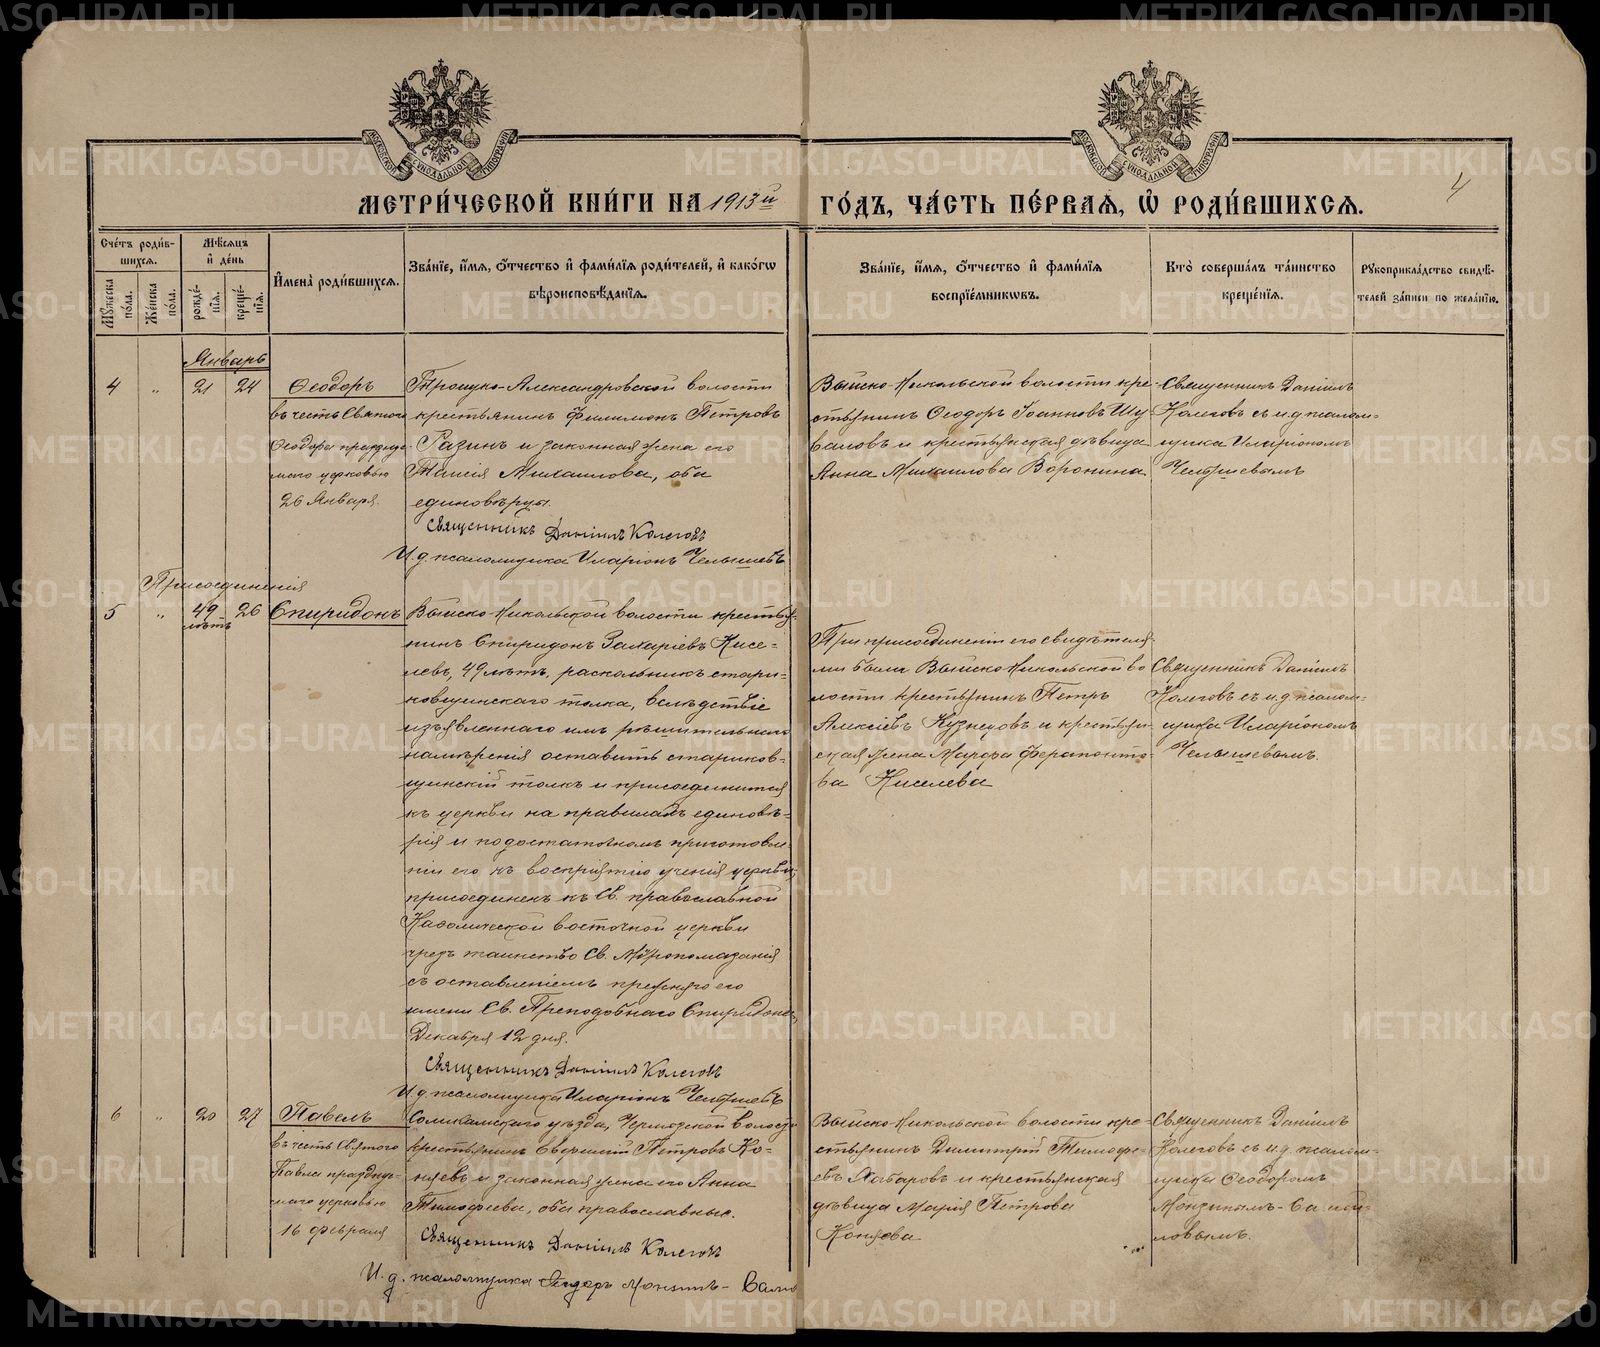 МЕТРИ́ЧЕСКОЙ КНИ́ГИ НА 1913й ГО́ДЪ, ЧА́СТЬ ПЕ́РВАѦ, Ѡ҆ РОДИ́ВШИХСѦ.
4
Сче́тъ роди́вшихсѧ.
Мꙋ́жеска по́ла.
Же́нска по́ла.
Мѣ́сѧцъ и҆ де́нь
рожде́нїѧ.
креще́нїѧ.
И҆мена̀ роди́вшихсѧ.
Зва́нїе, и҆́мѧ, ѻ҆́тчество и҆ фами́лїѧ роди́телей, и҆ како́гѡ
вѣроисповѣ́данїѧ.
Зва́нїе, и҆́мѧ, ѻ҆́тчество и҆ фами́лїѧ
воспрїе́мникѡвъ.
Кто̀ соверша́лъ та́инство
креще́нїѧ.
Рꙋкоприкла́дство свидѣ́-
телей за́писи по жела́нїю.
Январь
4 " 21 24
Ѳеодоръ
въ честь Святаго
Ѳеодора празднуе-
маго церковью
26 Января.
Троицко-Александровской волости
крестьянинъ Филимонъ Петровъ
Разинъ и законная жена его
Таисія Михаилова, оба
единовѣрцы.
Священникъ Даніилъ Колеговъ
И. д. псаломщика Иларіонъ Челышевъ
Выйско-Никольской волости кре-
стьянинъ Ѳеодоръ Іоанновъ Шу
валовъ и крестьянская дѣвица
Анна Михаилова Воронина
Священникъ Даніилъ
Колеговъ съ и. д. псалом-
щика Иларіономъ
Челышевымъ
Присоединенія
5 " 49 лѣтъ 26
Спиридонъ
Выйско-Никольской волости крестья-
нинъ Спиридонъ Захаріевъ Кисе-
левъ, 49 лѣтъ, раскольникъ стари-
ковщинскаго толка, вслѣдствіе
изъявленнаго имъ рѣшительнаго
намѣренія оставить стариков-
щинскій толкъ и присоединится
къ церкви на правилахъ единовѣ-
рія и по достаточномъ приготовле-
ніи его къ воспріятію ученія церкви,
присоединенъ къ Св. православной
Каѳолической восточной церкви
чрезъ таинство Св. Мѵропомазанія
съ оставленіемъ прежняго его
имени Св. Преподобнаго Спиридона,
Декабря 12 дня.
Священникъ Даніилъ Колеговъ
И. д. псаломщика Иларіонъ Челышевъ
При присоединеніи его свидѣтеля-
ми были Выйско-Никольской во
лости крестьянинъ Петръ
Алексіевъ Кузнецовъ и крестьян-
ская жена Марѳа Ферапонто-
ва Киселева
Священникъ Даніилъ
Колеговъ съ и. д. псалом-
щика Иларіономъ
Челышевымъ.
6 " 20 27
Павелъ
въ честь Святого
Павла празднуе-
маго церковью
16 февраля
Соликамскаго уѣзда, Чермозской волости
крестьянинъ Петровъ Ко-
няевъ и законная жена его Анна
Тимофеева, оба православные.
Священникъ Даніилъ Колеговъ
И. д. псаломщика Ѳеодоръ
Выйско-Никольской волости кре-
стьянинъ Димитрій Тимофе-
евъ Хабаровъ и крестьянская
дѣвица Марія Петрова
Коняева
Священникъ Даніилъ
Колеговъ съ и. д. псалом-
щика Ѳеодоромъ